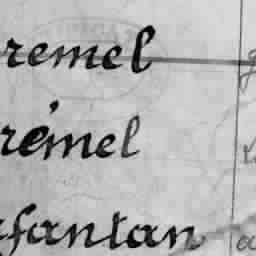 remel
rémel
fantan